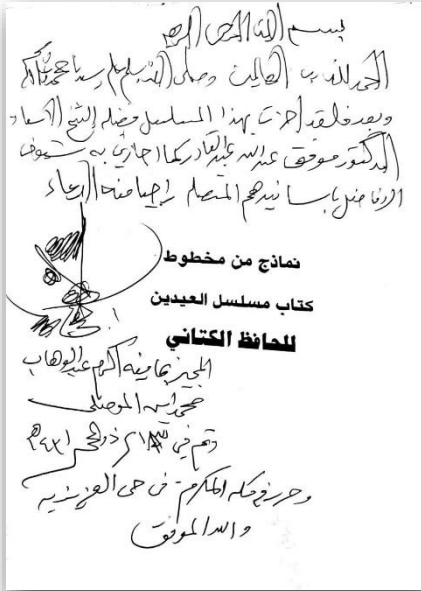 بسم الله الرحمن الرحيم
الحمد لله رب العالمين وصلى الله وسلم على سيدنا محمد
وبعد فلقد أجزت بهذا المسلسل فضيلة الشيخ الأستاذ
الدكتور موفق عبد الله عبد القادر كما اجازني به شيوخي
الأفاضل بأسانيدهم المتصلة راجيا منه الدعاء
نماذج من مخطوط
كتاب مسلسل العيدين
للحافظ الكتاني
المجيز بما فيه أكرم عبد الوهاب
محمد أمين الموصلي
وتم في ذو الحجة ١٤٣١هـ
وحرر في مكة المكرمة في حي العزيزية
والله الموفق